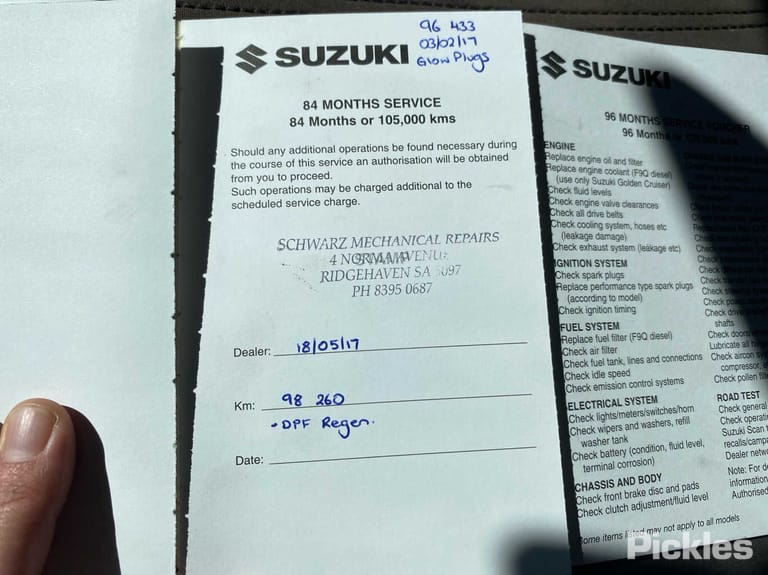 96 433
03/02/17
Glow Plugs
SUZUKI
84 MONTHS SERVICE
84 Months or 105,000 kms
Should any additional operations be found necessary during
the course of this service an authorisation will be obtained
from you to proceed.
Such operations may be charged additional to the
scheduled service charge.
SCHWARZ MECHANICAL REPAIRS
4 NORMA AVENUE
STAMP
RIDGEHAVEN SA 5097
PH 8395 0687
Dealer: 18/05/17
Km: 98 260
- DPF Regen.
Date:
SUZUKI
96 MONTHS SERVICE VOUCHER
96 Months or 120,000 kms
ENGINE
Replace engine oil and filter
Replace engine coolant (F9Q diesel)
(use only Suzuki Golden Cruiser)
Check fluid levels
Check engine valve clearances
Check all drive belts
Check cooling system, hoses etc
(leakage damage)
Check exhaust system (leakage etc)
IGNITION SYSTEM
Check spark plugs
Replace performance type spark plugs
(according to model)
Check ignition timing
FUEL SYSTEM
Replace fuel filter (F9Q diesel)
Check air filter
Check fuel tank, lines and connections
Check idle speed
Check emission control systems
ELECTRICAL SYSTEM
Check lights/meters/switches/horn
Check wipers and washers, refill
washer tank
Check battery (condition, fluid level,
terminal corrosion)
CHASSIS AND BODY
Check front brake disc and pads
Check clutch adjustment/fluid level
shafts
Check doors
Lubricate all
Check aircon
compressor,
Check pollen
ROAD TEST
Check general
Check
Suzuki Scan
Dealer
Note: For
information
Authorised
Some items listed may not apply to all models
Pickles